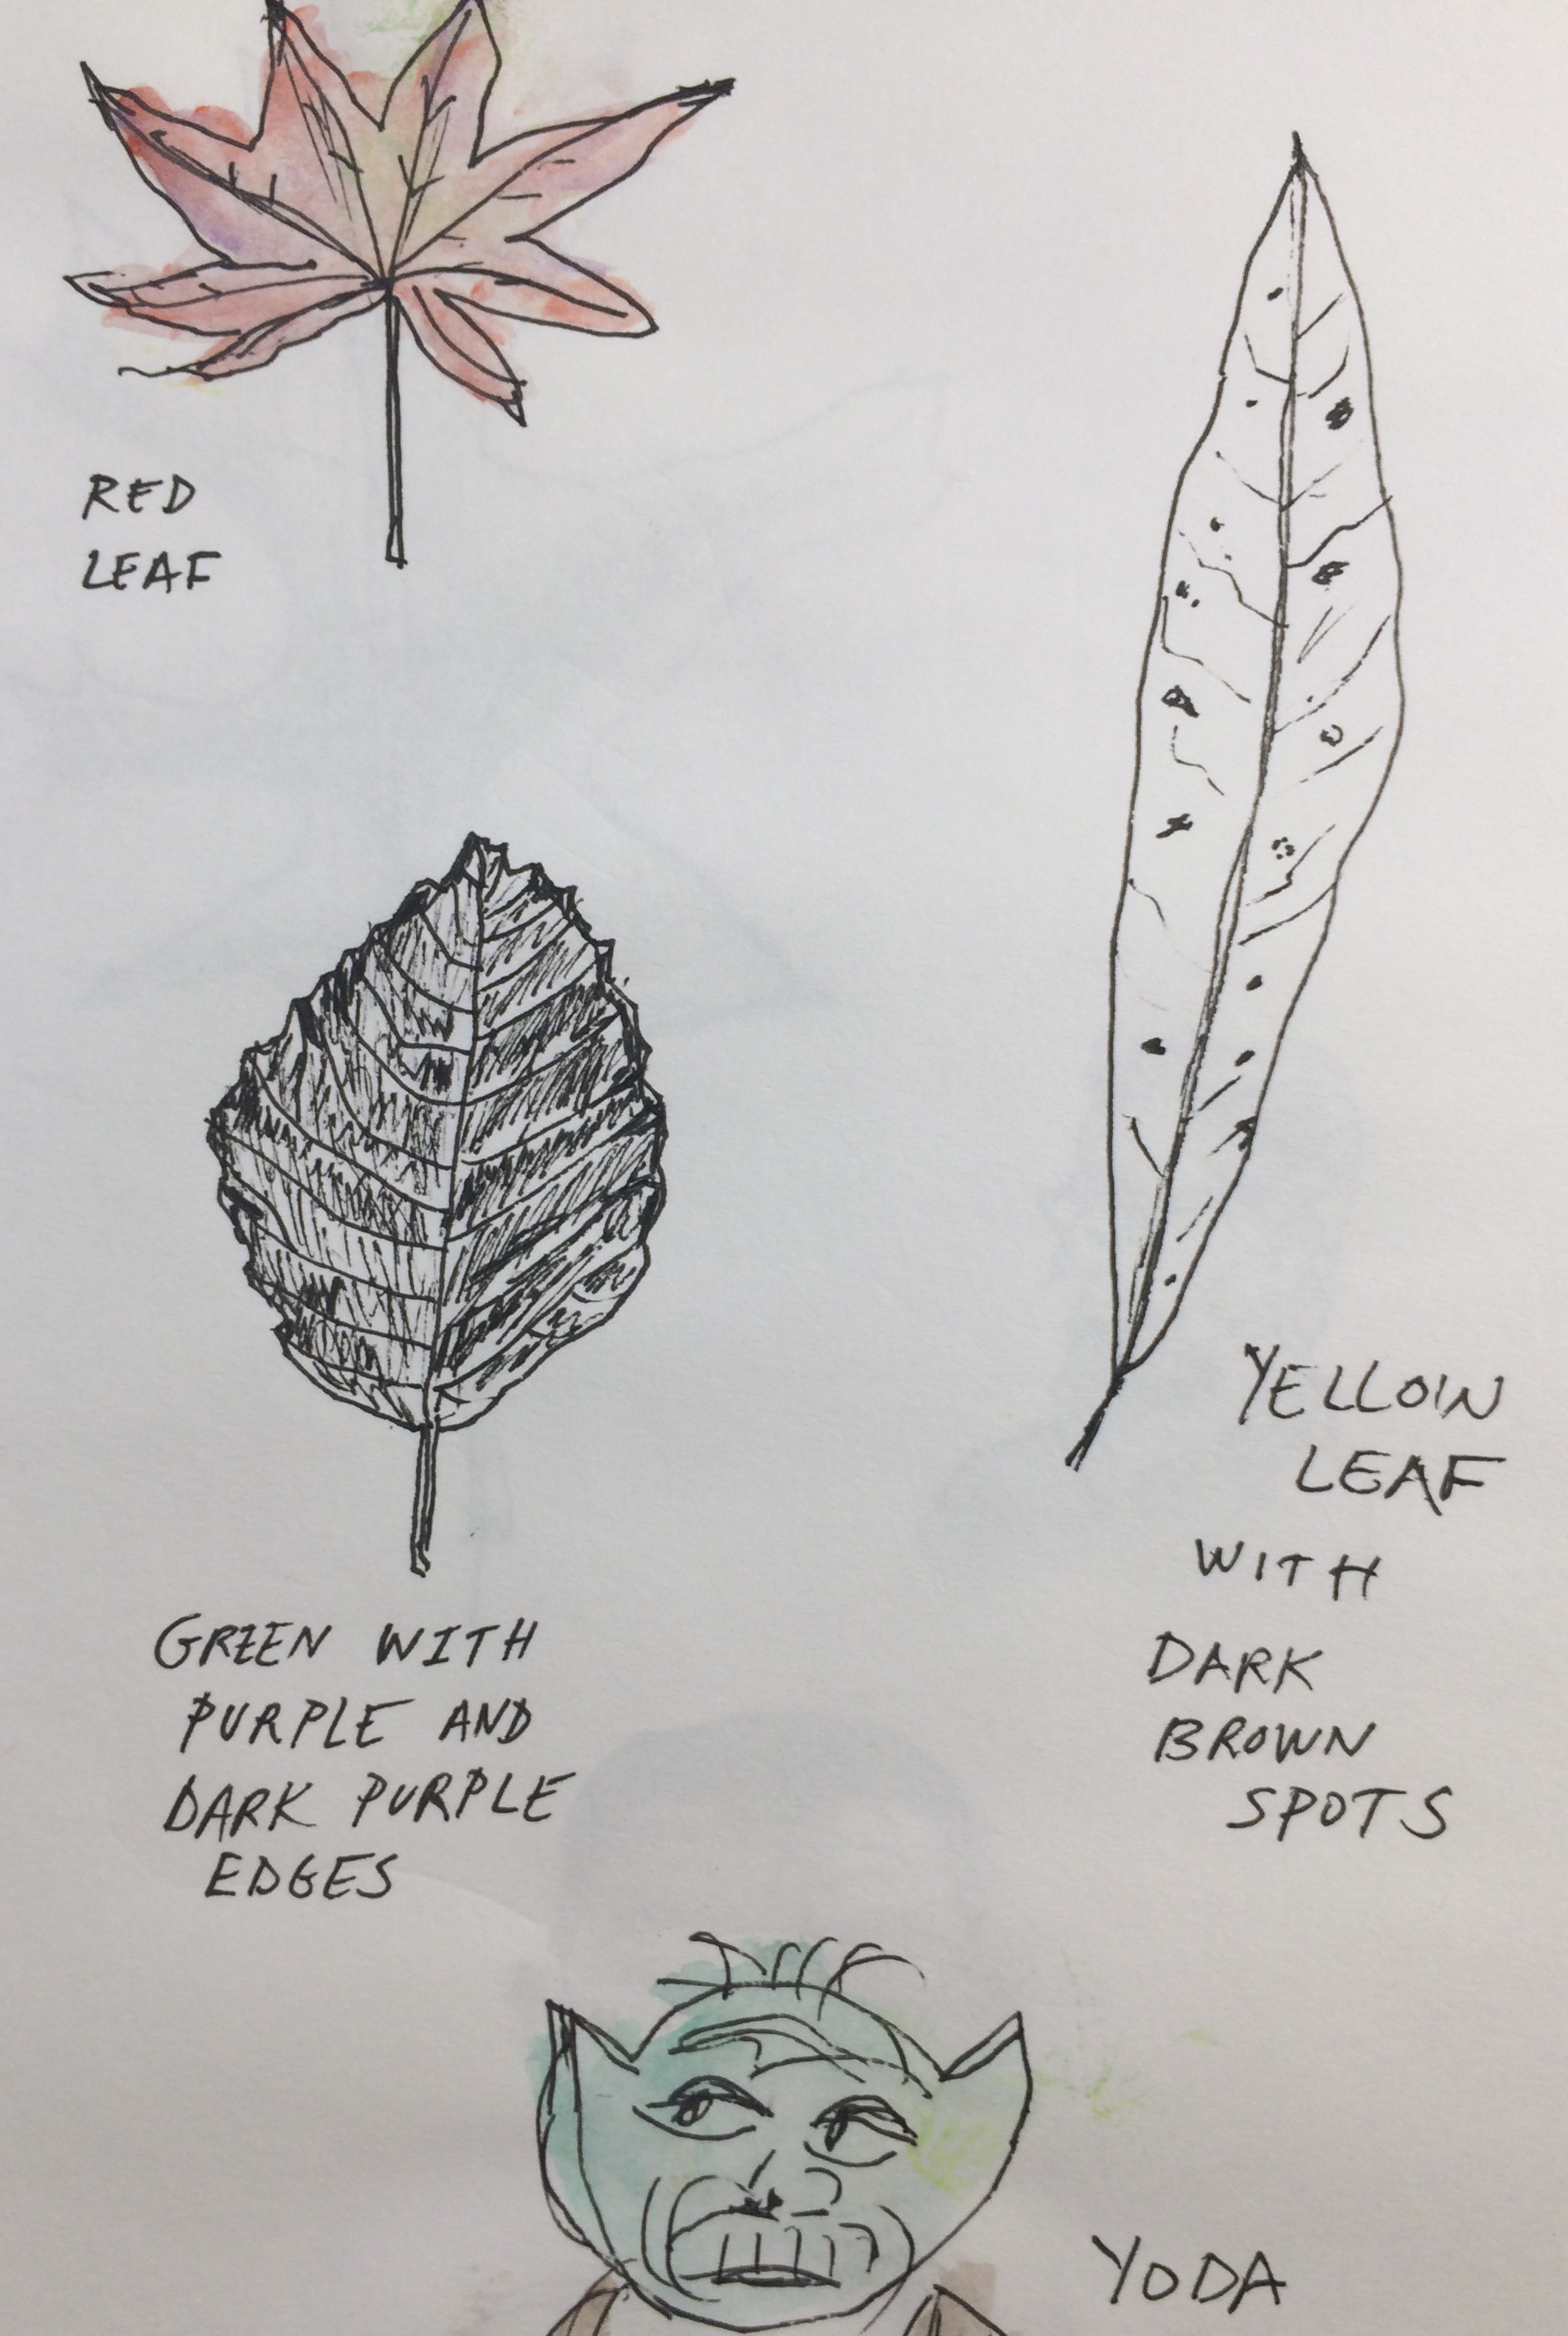 RED
LEAF
GREEN WITH
PURPLE AND
DARK PURPLE
EDGES
YELLOW
LEAF
WITH
DARK
BROWN
SPOTS
YODA